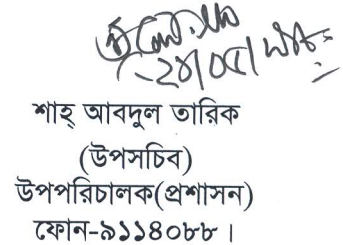 শাহ্ আবদুল তারিক
(উপসচিব)
উপপরিচালক(প্রশাসন)
ফোন-৯১১৪০৮৮।